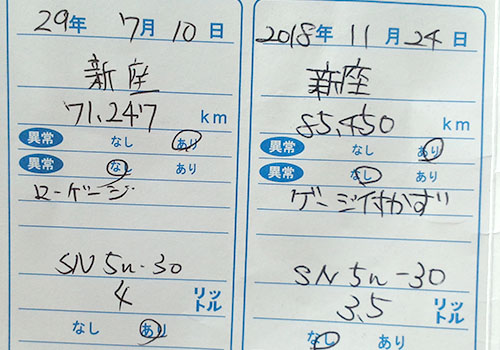 29年 7月 10日
新座
71,247 km
異常 なし あり
異常 なし あり
ローゲージ
SN 5W-30
4 リットル
なし あり
2018年 11月 24日
新座
85,450 km
異常 なし あり
異常 なし あり
ゲージ付かず
SN 5W-30
3.5 リットル
なし あり